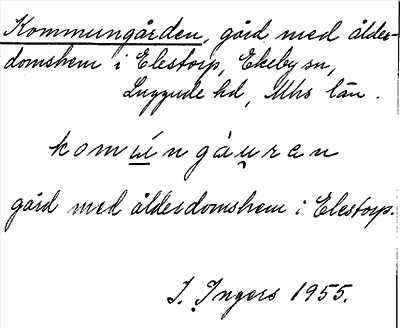 Kommungården, gård med ålder-
domshem i Elestorp, Ekeby sn,
Luggude hd, Mhs län.
komúngáu̯ren
gård med ålderdomshem i Elestorp.
I. Ingers 1955.